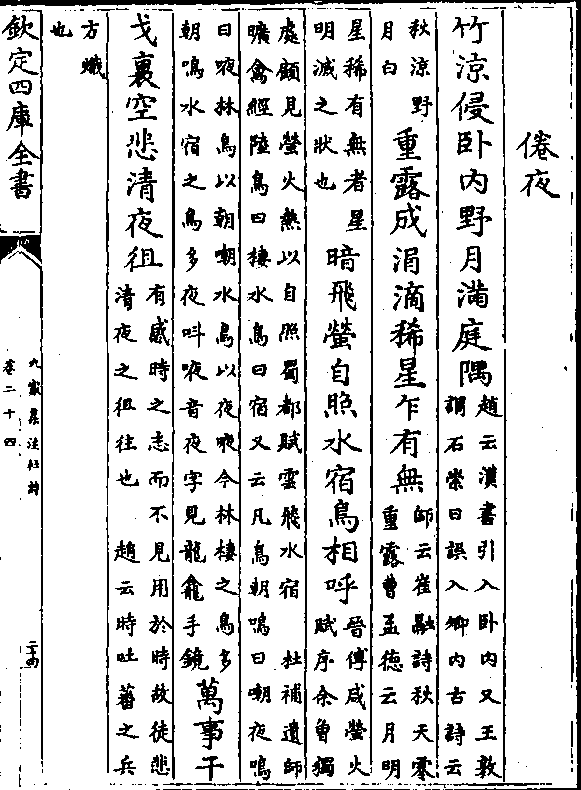 倦夜
竹涼侵卧内野月滿庭隅
趙云漢書引入卧内又王敦
謂石崇曰誤入卿内古詩云
秋涼野
月白
重露成涓滴稀星乍有無
師云崔融詩秋天零
重露曹孟德云月明
星稀有無者星
明滅之狀也
暗飛螢自照水宿鳥相呼
晉傅咸螢火
賦序余曾獨
處顧見螢火熱以自照蜀都賦雲飛水宿 杜補遺師
曠禽經陸鳥曰棲水鳥曰宿又云凡鳥朝鳴曰嘲夜鳴
曰㖡林鳥以朝嘲水鳥以夜㖡今林棲之鳥多
朝鳴水宿之鳥多夜呌㖡音夜字見龍龕手鏡
萬事干
戈裏空悲清夜徂
有感時之志而不見用於時故徒悲
清夜之徂往也 趙云時吐蕃之兵
方熾
也
欽定四庫全書
九家集注杜詩
卷二十四